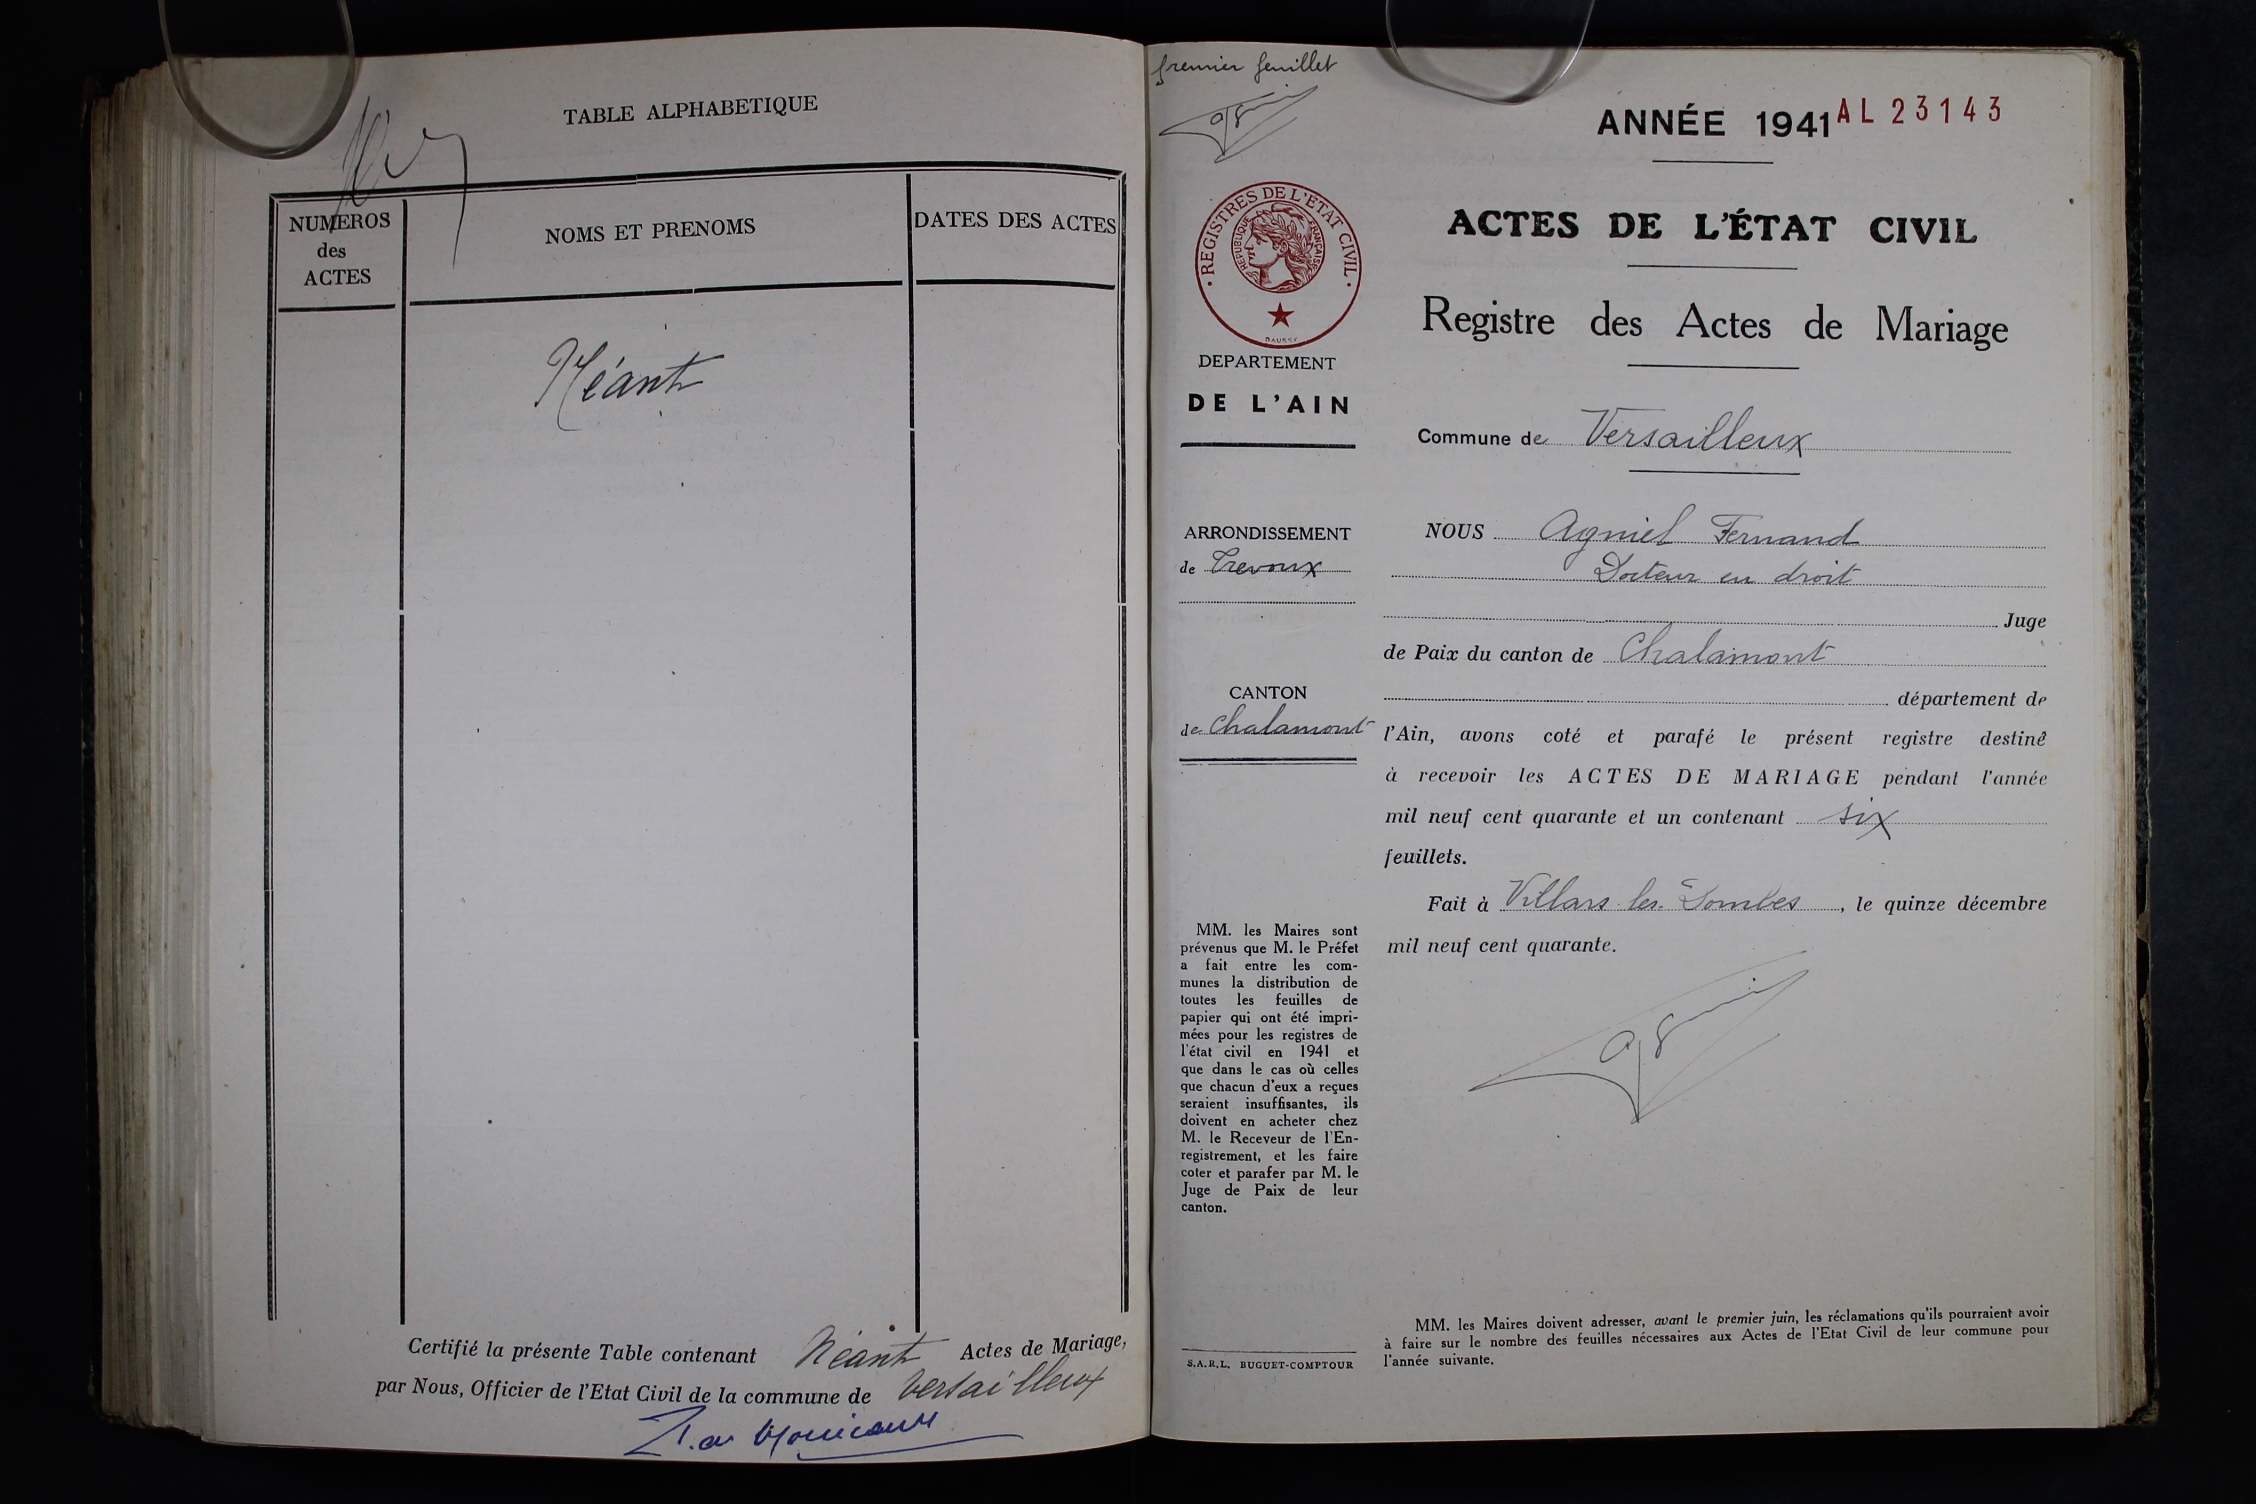 TABLE ALPHABETIQUE
NUMEROS
des
ACTES
NOMS ET PRENOMS
DATES DES ACTES
Néant
Certifié la présente Table contenant Néant Actes de Mariage,
par Nous, Officier de l'Etat Civil de la commune de Versailleux
premier feuillet
ANNÉE 1941
AL 23143
REGISTRES DE L'ETAT CIVIL
REPUBLIQUE FRANÇAISE
DEPARTEMENT
DE L'AIN
ARRONDISSEMENT
de Trevoux
CANTON
de Chalamont
MM. les Maires sont
prévenus que M. le Préfet
a fait entre les com-
munes la distribution de
toutes les feuilles de
papier qui ont été impri-
mées pour les registres de
l'état civil en 1941 et
que dans le cas où celles
que chacun d'eux a reçues
seraient insuffisantes, ils
doivent en acheter chez
M. le Receveur de l'En-
registrement, et les faire
coter et parafer par M. le
Juge de Paix de leur
canton.
S.A.R.L. BUGUET-COMPTOUR
ACTES DE L'ÉTAT CIVIL
Registre des Actes de Mariage
Commune de Versailleux
NOUS Agniel Fernand
Docteur en droit
Juge
de Paix du canton de Chalamont
département de
l'Ain, avons coté et parafé le présent registre destiné
à recevoir les ACTES DE MARIAGE pendant l'année
mil neuf cent quarante et un contenant six
feuillets.
Fait à Villars les Dombes, le quinze décembre
mil neuf cent quarante.
MM. les Maires doivent adresser, avant le premier juin, les réclamations qu'ils pourraient avoir
à faire sur le nombre des feuilles nécessaires aux Actes de l'Etat Civil de leur commune pour
l'année suivante.